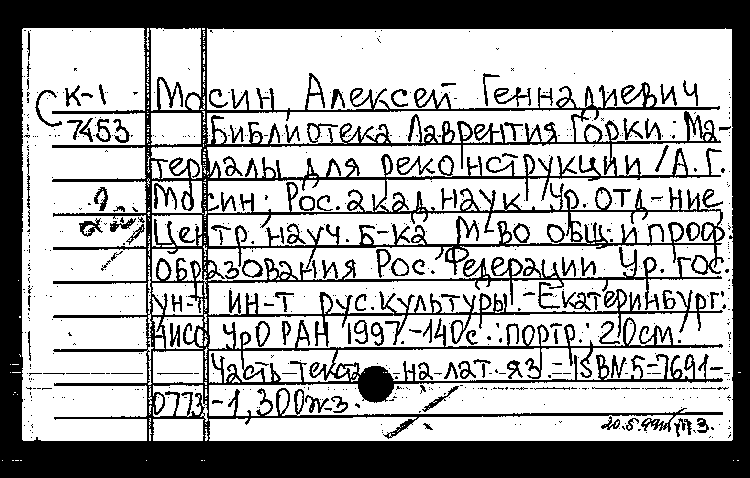 К-1 Мосин, Алексей Геннадиевич
7453 Библиотека Лаврентия Горки: Ма-
териалы для реконструкции / А.Г.
Мосин; Рос. акад. наук. Ур. отд-ние,
Центр. науч. б-ка, М-во общ. и проф.
образования Рос. Федерации, Ур. гос.
ун-т, ин-т рус. культуры. - Екатеринбург:
НИСО УрО РАН, 1997. - 140с.: портр.; 20см.
Часть текста на лат. яз. - ISBN 5-7691-
0773-1, 300экз.
20.5.99